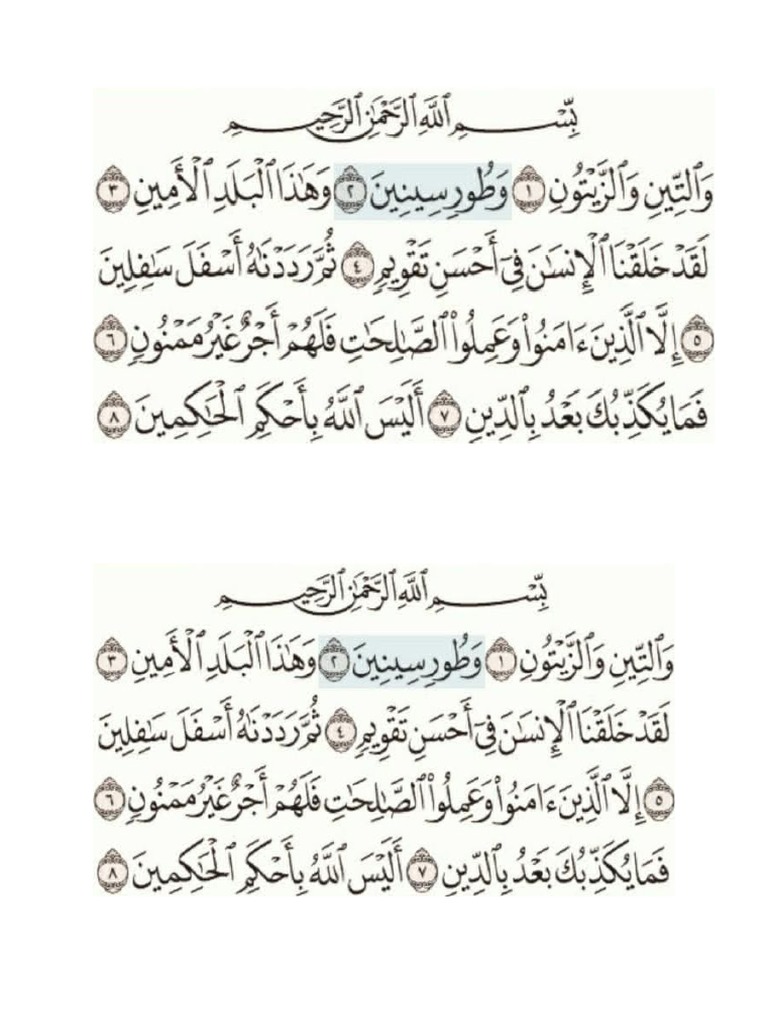 بِسْمِ ٱللَّهِ ٱلرَّحْمَٰنِ ٱلرَّحِيمِ
وَٱلتِّينِ وَٱلزَّيْتُونِ ١ وَطُورِ سِينِينَ ٢ وَهَٰذَا ٱلْبَلَدِ ٱلْأَمِينِ ٣
لَقَدْ خَلَقْنَا ٱلْإِنسَٰنَ فِىٓ أَحْسَنِ تَقْوِيمٍ ٤ ثُمَّ رَدَدْنَٰهُ أَسْفَلَ سَٰفِلِينَ
٥ إِلَّا ٱلَّذِينَ ءَامَنُوا۟ وَعَمِلُوا۟ ٱلصَّٰلِحَٰتِ فَلَهُمْ أَجْرٌ غَيْرُ مَمْنُونٍ ٦
فَمَا يُكَذِّبُكَ بَعْدُ بِٱلدِّينِ ٧ أَلَيْسَ ٱللَّهُ بِأَحْكَمِ ٱلْحَٰكِمِينَ ٨
بِسْمِ ٱللَّهِ ٱلرَّحْمَٰنِ ٱلرَّحِيمِ
وَٱلتِّينِ وَٱلزَّيْتُونِ ١ وَطُورِ سِينِينَ ٢ وَهَٰذَا ٱلْبَلَدِ ٱلْأَمِينِ ٣
لَقَدْ خَلَقْنَا ٱلْإِنسَٰنَ فِىٓ أَحْسَنِ تَقْوِيمٍ ٤ ثُمَّ رَدَدْنَٰهُ أَسْفَلَ سَٰفِلِينَ
٥ إِلَّا ٱلَّذِينَ ءَامَنُوا۟ وَعَمِلُوا۟ ٱلصَّٰلِحَٰتِ فَلَهُمْ أَجْرٌ غَيْرُ مَمْنُونٍ ٦
فَمَا يُكَذِّبُكَ بَعْدُ بِٱلدِّينِ ٧ أَلَيْسَ ٱللَّهُ بِأَحْكَمِ ٱلْحَٰكِمِينَ ٨